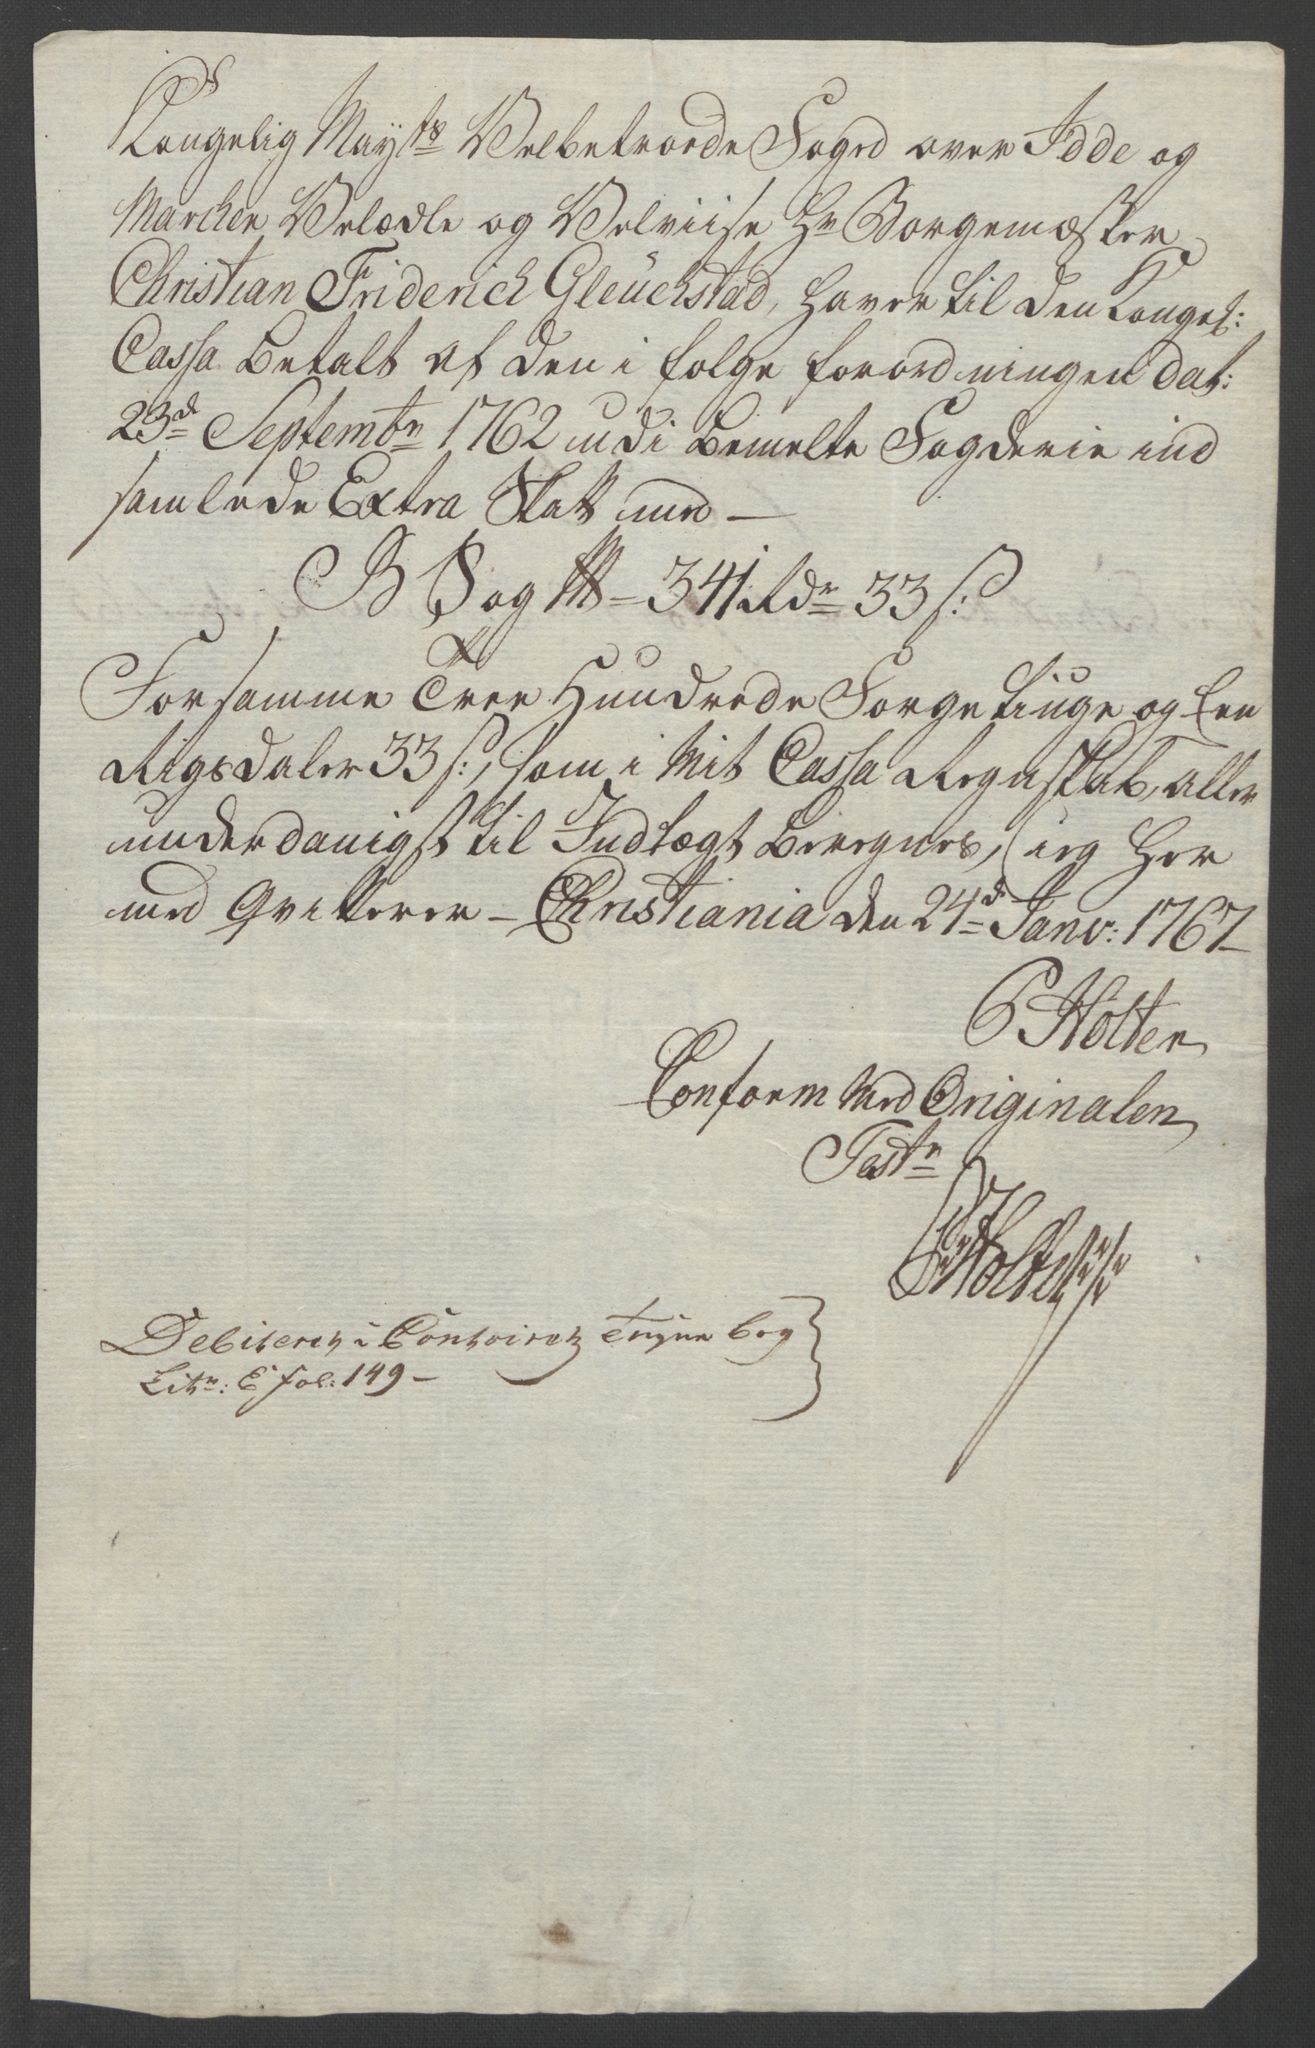 Kongelig Mayts Velbetroede Foged over Idde og
Marcker Velædle og Velviise Hr Borgemæster
Christian Friderich Gleuchstad, haver til den Kongel:
Cassa betalt af den i følge forordningen dat:
23d Septembr 1762 udi bemelte Fogderie ind
samlede Extra Skatt med —
341 Rdr 33 s:
For samme Tree Hundrede Førgetiuge og Een
Rigsdaler 33 s:, som i Mit Cassa Regnskab, aller
underdanigst til Indtægt beregnes, ieg her
med Qvitterer — Christiania den 24d Janv: 1767
P Holter
Conform Med Originalen
Test
Holter
Debiteret i Contoirets bog
Litr: E fol: 149 —